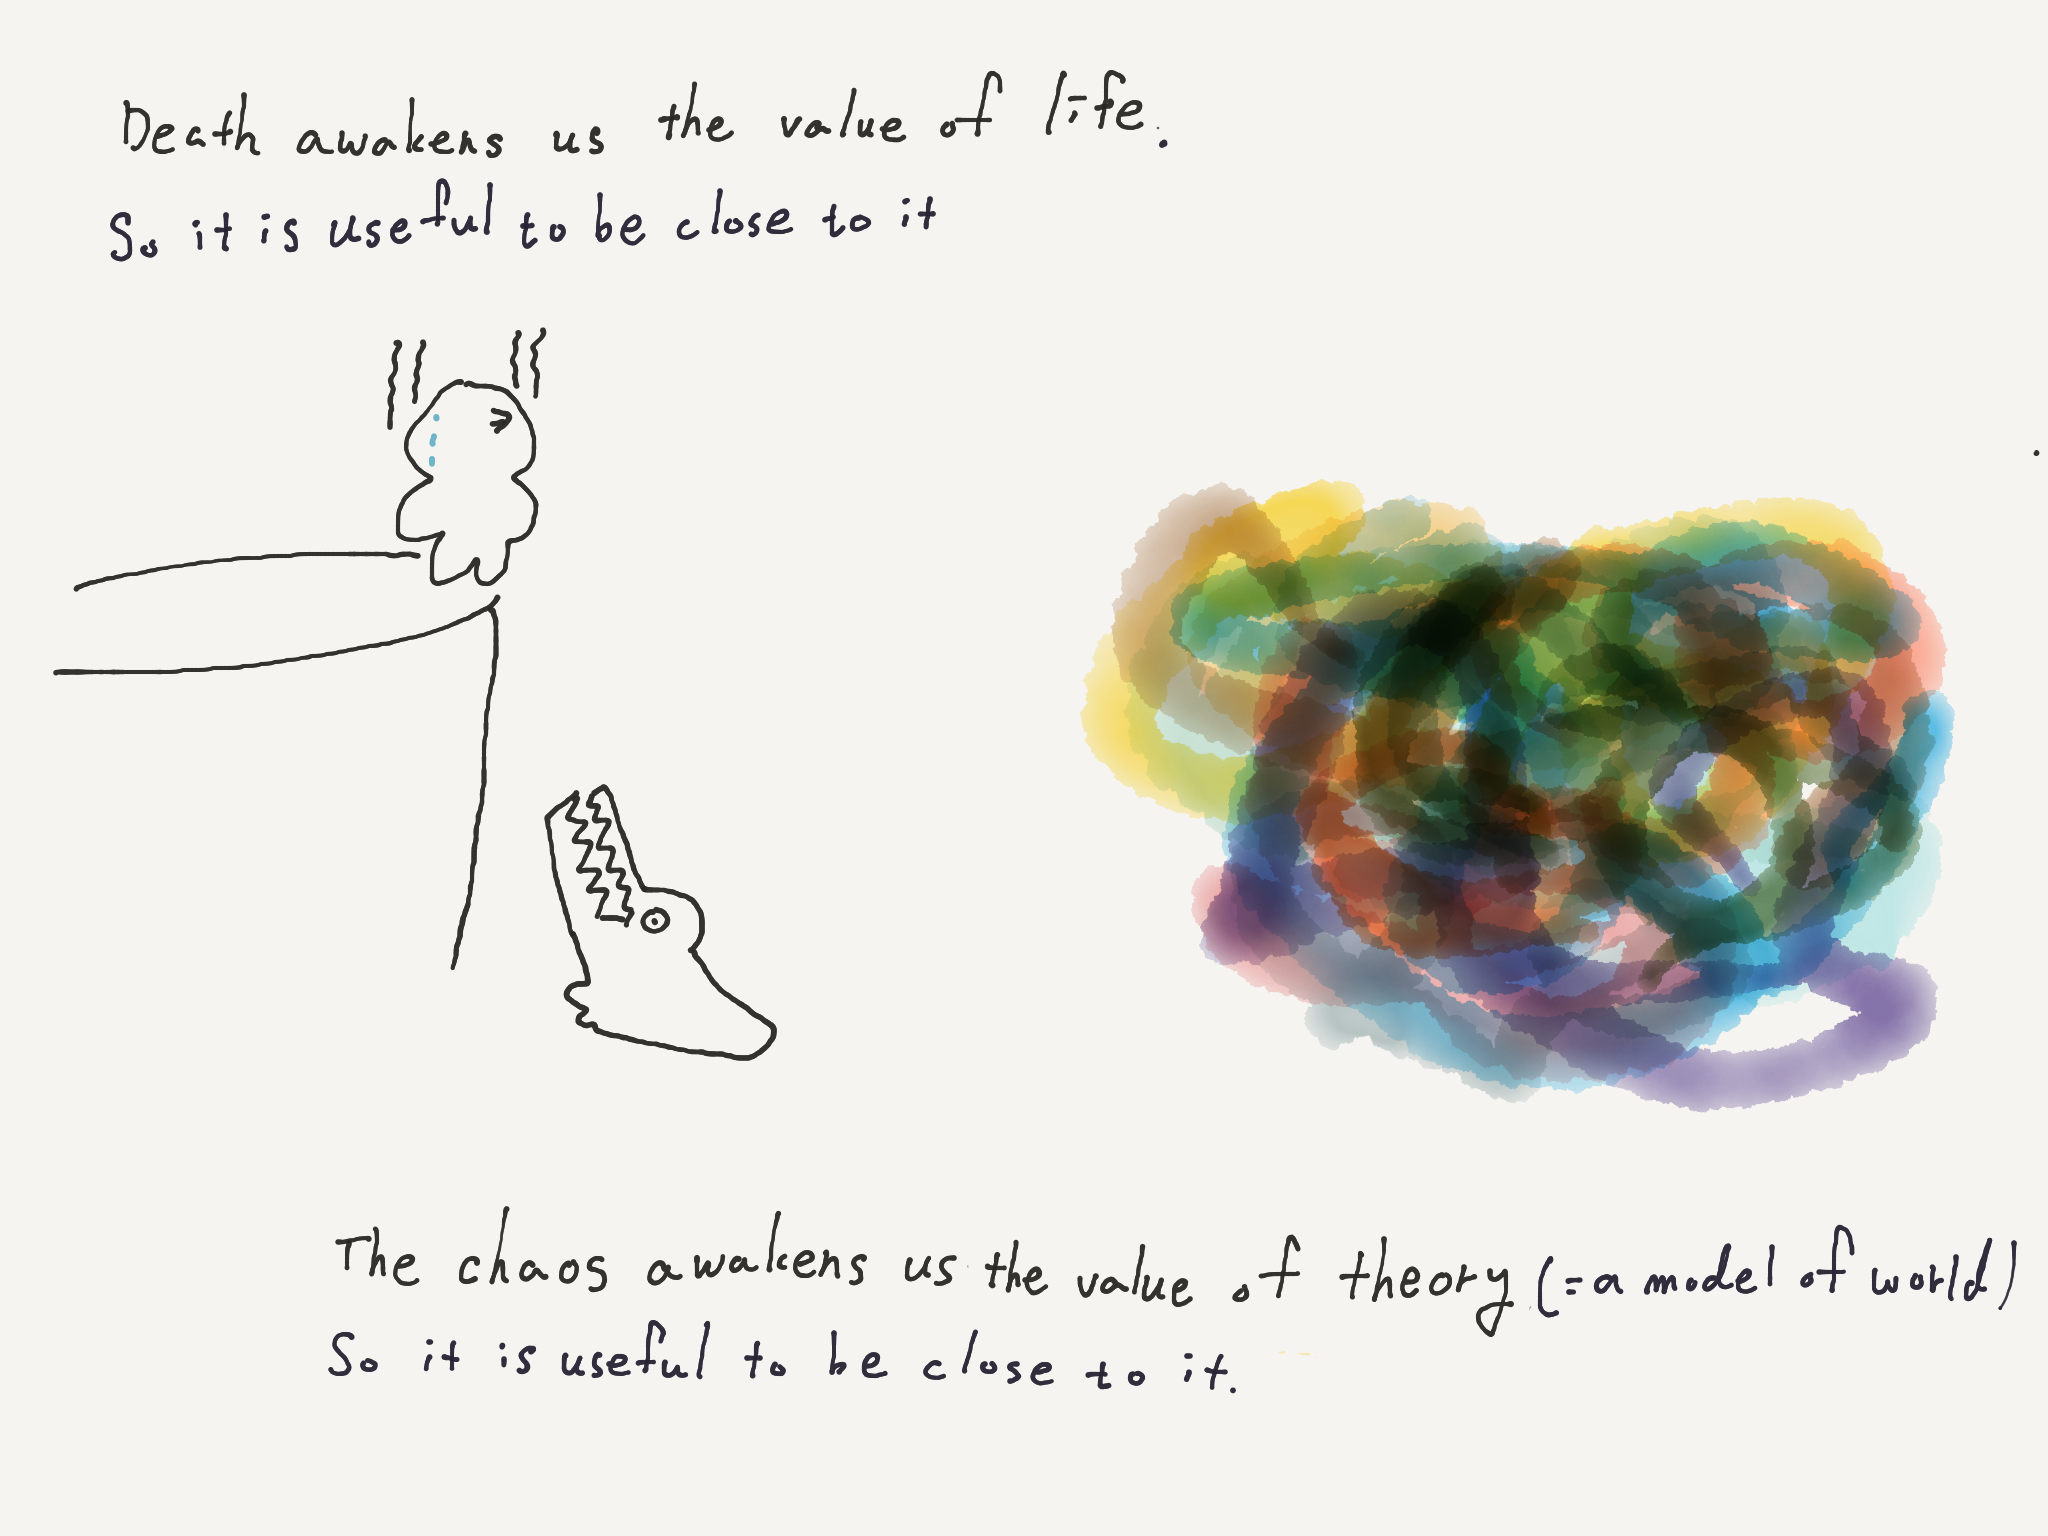 Death awakens us the value of life.
So it is useful to be close to it
The chaos awakens us the value of theory (= a model of world)
So it is useful to be close to it.